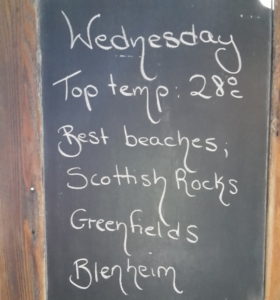 Wednesday
Top temp: 28°c
Best beaches;
Scottish Rocks
Greenfields
Blenheim